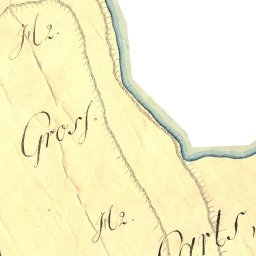 H2.
Gross.
H2.
Parts,